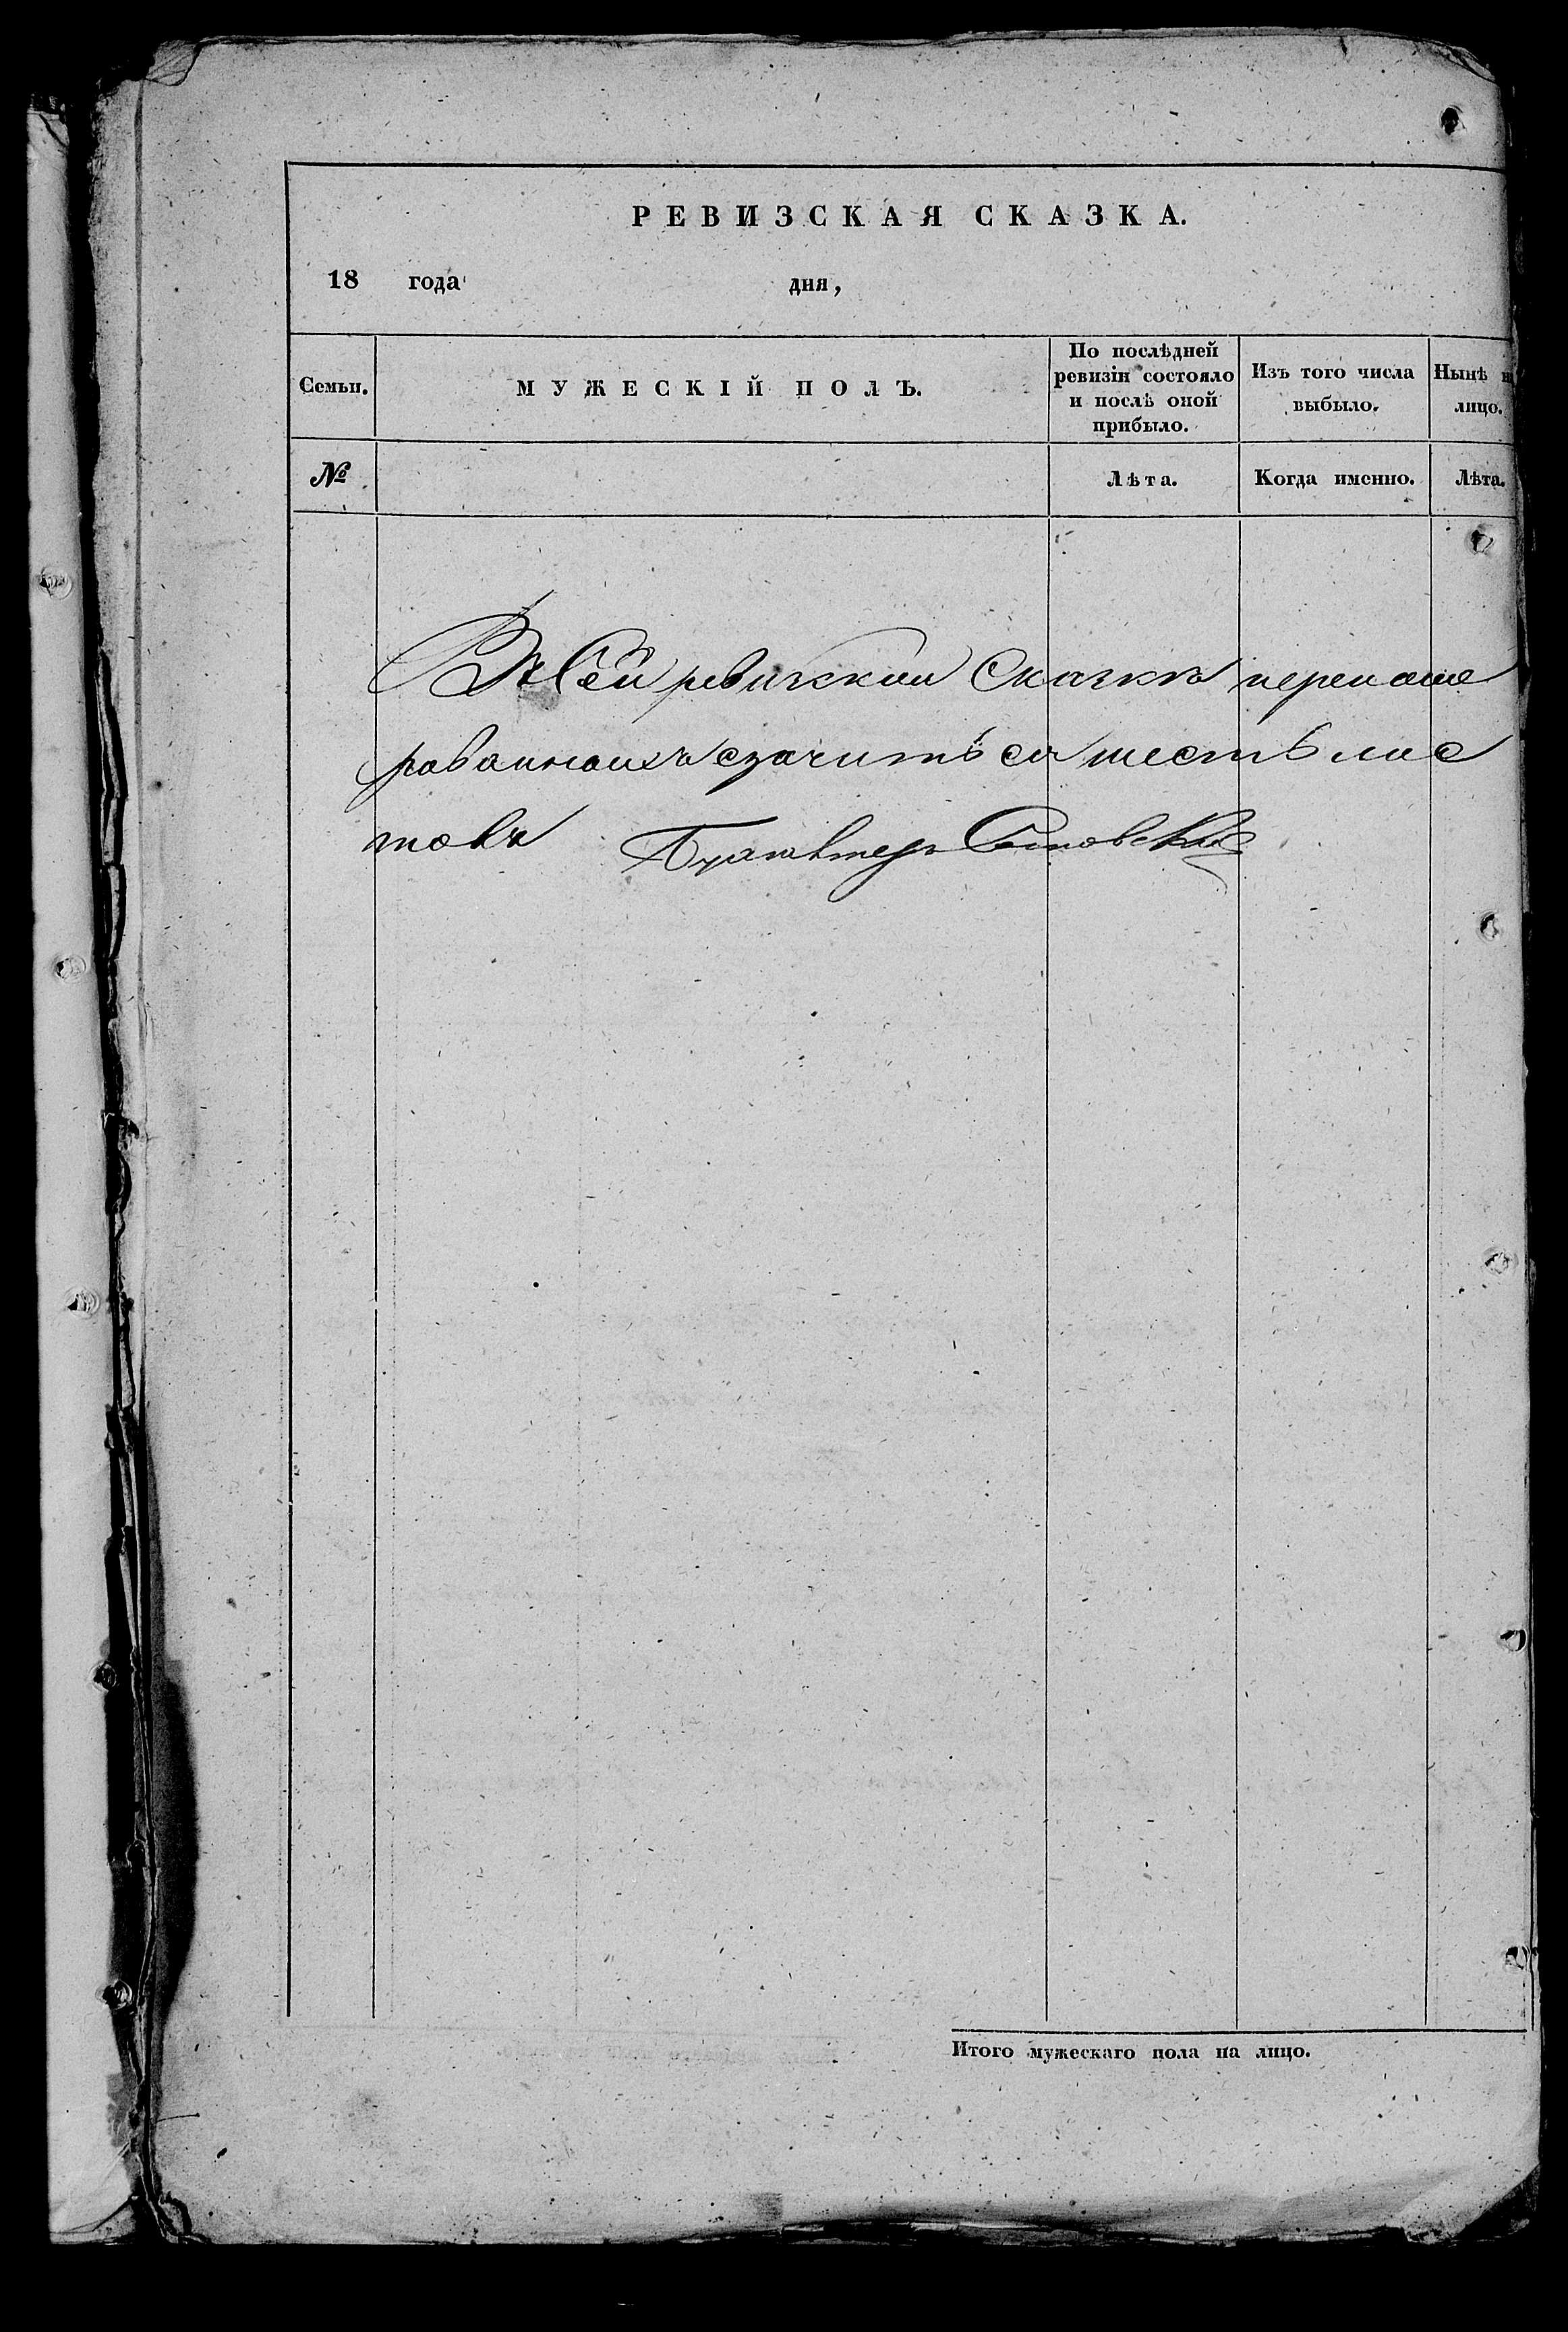 РЕВИЗСКАЯ СКАЗКА.
18 года дня,
Семьи.
МУЖЕСКІЙ ПОЛЪ.
По послѣдней
ревизіи состояло
и послѣ оной
прибыло.
Изъ того числа
выбыло.
Нынѣ на
лицо.
№
Лѣта.
Когда именно.
Лѣта.
Въ Сей ревизскои Сказкѣ перенуме
рованныхъ значитъся шесть лис
товъ Бухгалтеръ
Итого мужескаго пола на лицо.